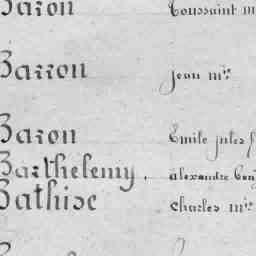 Baron Toussaint m
Barron Jean m^in
Baron Emile Jules
Barthelemy, alexandre
Bathise Charles m^in